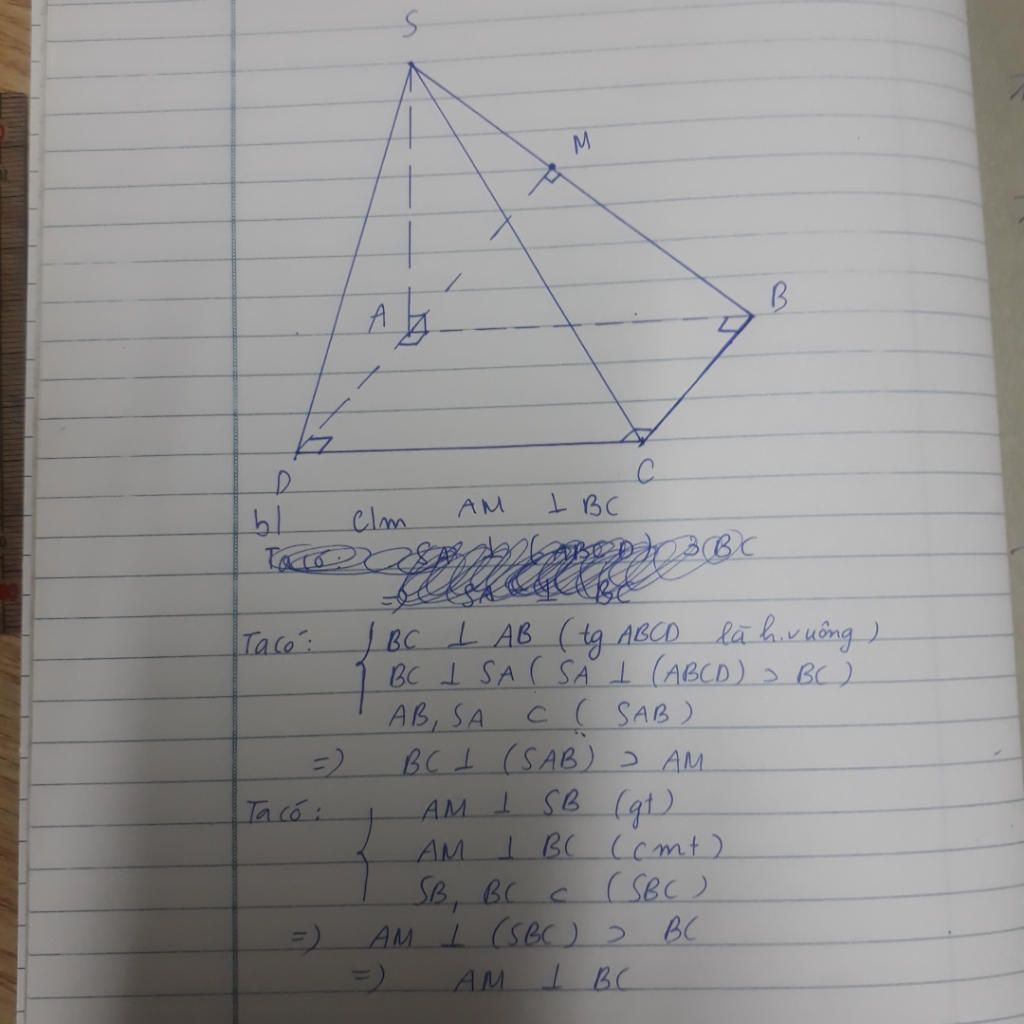 S
M
A
B
D
C
b) C/m AM ⊥ BC
Ta có: SA ⊥ (ABCD) ⊃ BC
=> SA ⊥ BC
Ta có: { BC ⊥ AB (tg ABCD là h.vuông)
BC ⊥ SA (SA ⊥ (ABCD) ⊃ BC)
AB, SA ⊂ (SAB)
=) BC ⊥ (SAB) ⊃ AM
Ta có: { AM ⊥ SB (gt)
AM ⊥ BC (cmt)
SB, BC ⊂ (SBC)
=) AM ⊥ (SBC) ⊃ BC
=) AM ⊥ BC